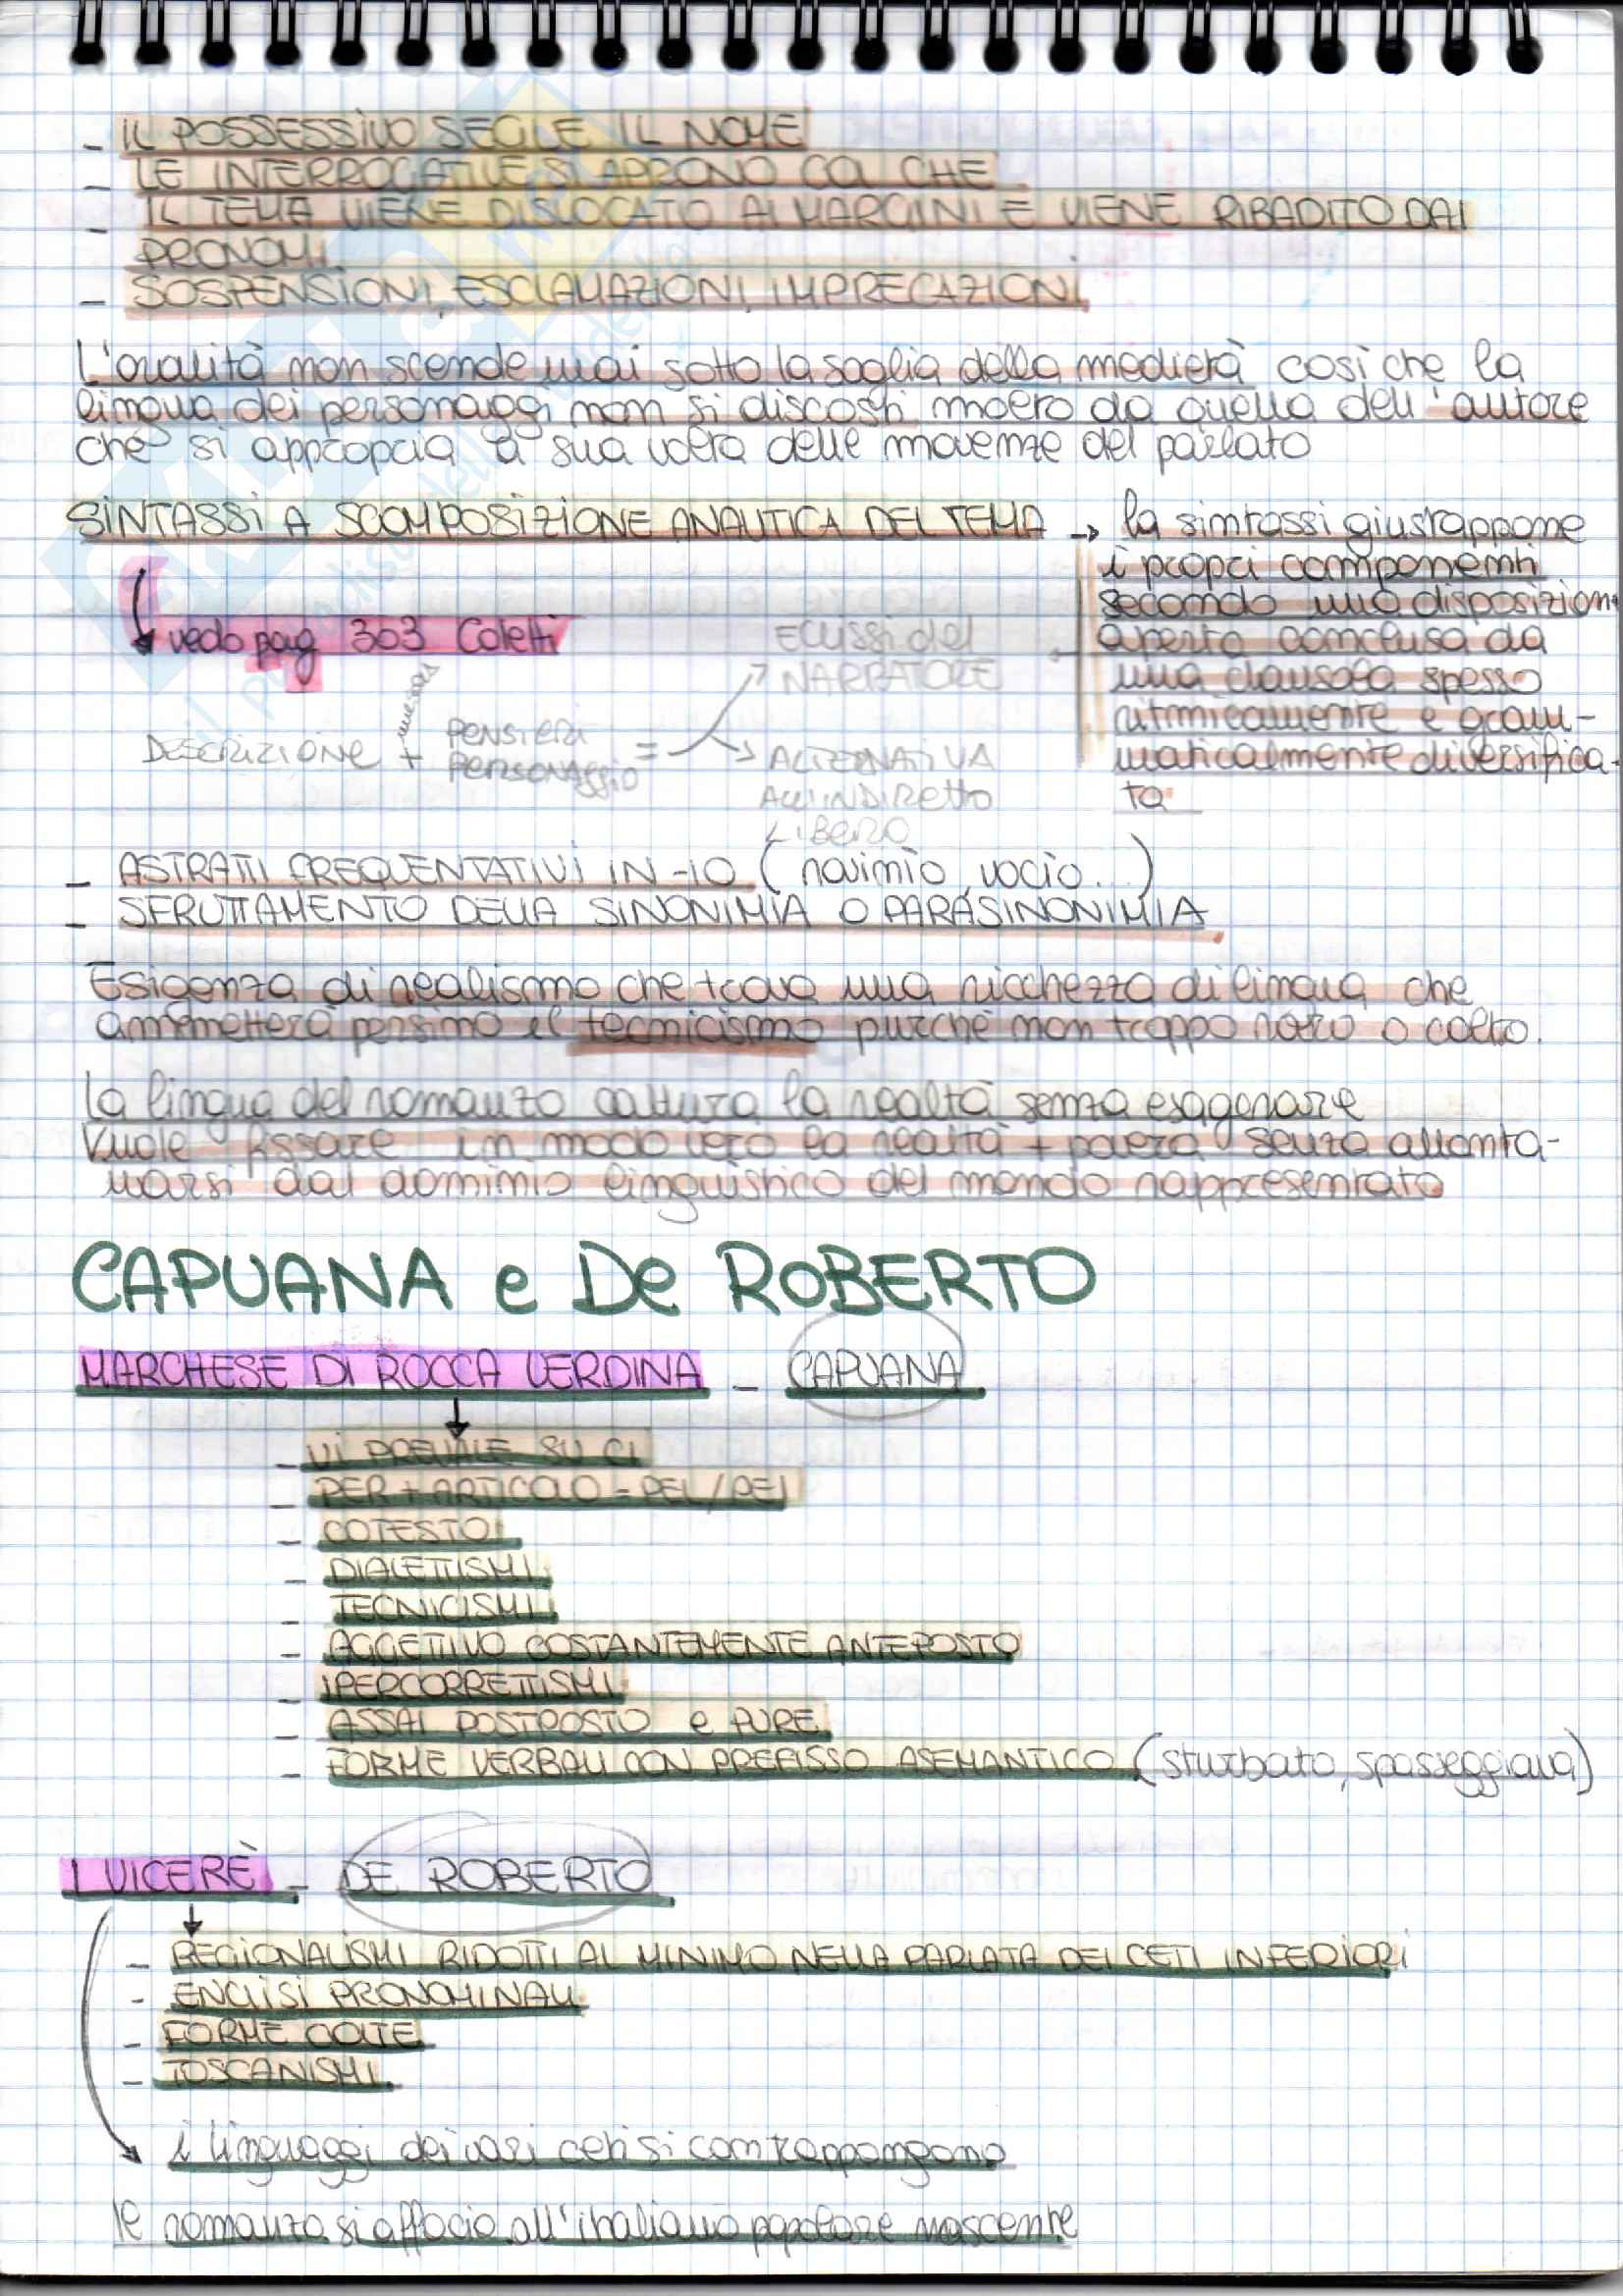 - IL POSSESSIVO SEGUE IL NOME
- LE INTERROGATIVE SI APRONO COL CHE
- IL TEMA VIENE DISLOCATO AI MARGINI E VIENE RIBADITO DAI
PRONOMI
- SOSPENSIONI, ESCLAMAZIONI, IMPRECAZIONI
L'oralità non scende mai sotto la soglia della medietà così che la
lingua dei personaggi non si discosti molto da quella dell'autore
che si appropria a sua volta delle movenze del parlato
SINTASSI A SCOMPOSIZIONE ANALITICA DEL TEMA → la sintassi giustappone
i propri componenti
secondo una disposizion
aperta conclusa da
una clausola spesso
ritmicamente e gram-
maticalmente diversifica-
ta
vedo pag 303 Coletti
ECLISSI del
NARRATORE
DESCRIZIONE + PENSIERI
PERSONAGGIO =
ALTERNATIVA
ALL'INDIRETTO
LIBERO
- ASTRATTI FREQUENTATIVI IN -IO (navimio, vocio..)
- SFRUTTAMENTO DELLA SINONIMIA O PARASINONIMIA
Esigenza di realismo che trova una ricchezza di lingua che
ammetterà persino il tecnicismo purché non troppo raro o colto.
La lingua del romanzo cattura la realtà senza esagerare
Vuole fissare in modo vero la realtà + povera senza allonta-
narsi dal dominio linguistico del mondo rappresentato
CAPUANA e De ROBERTO
MARCHESE DI ROCCA VERDINA - CAPUANA
- VI PREVALE SU CI
- PER + ARTICOLO = PEL/PEI
- COTESTO
- DIALETTISMI
- TECNICISMI
- AGGETTIVO COSTANTEMENTE ANTEPOSTO
- IPERCORRETTISMI
- ASSAI POSTPOSTO e PURE
- FORME VERBALI CON PREFISSO ASEMANTICO (sturbato, spasseggiava)
I VICERÈ - DE ROBERTO
- REGIONALISMI RIDOTTI AL MINIMO NELLA PARLATA DEI CETI INFERIORI
- ENCLISI PRONOMINALI
- FORME COLTE
- TOSCANISMI
i linguaggi dei vari ceti si contrappongono
il romanzo si affacia all'italiano popolare nascente